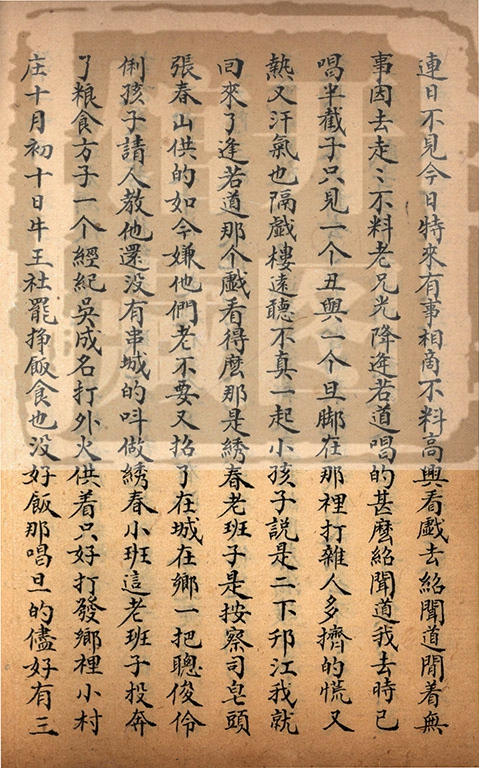 連日不見今日特來有事相商不料高興看戲去紹聞道閒着無
事因去走〻不料老兄光降逢若道唱的甚麼紹聞道我去時已
唱半截子只見一个丑與一个旦脚在那裡打雜人多擠的慌又
熱又汗氣也隔戲樓遠聽不真一起小孩子說是二下邗江我就
回來了逢若道那个戲看得麼那是綉春老班子是按察司皂頭
張春山供的如今嫌他們老不要又招了在城在鄉一把聰俊伶
俐孩子請人教他還没有串城的呌做綉春小班這老班子投奔
了粮食方子一个經紀吳成名打外火供着只好打發鄉裡小村
庄十月初十日牛王社罷挣飯食也没好飯那唱旦的儘好有三